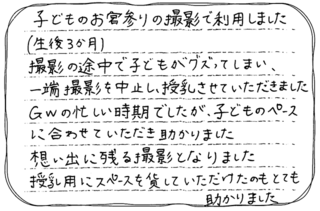 子どものお宮参りの撮影で利用しました
(生後3か月)
撮影の途中で子どもがグズってしまい、
一端撮影を中止し、授乳させていただきました
GWの忙しい時期でしたが、子どものペース
に合わせていただき助かりました
想い出に残る撮影となりました
授乳用にスペースを貸していただけたのもとても
助かりました